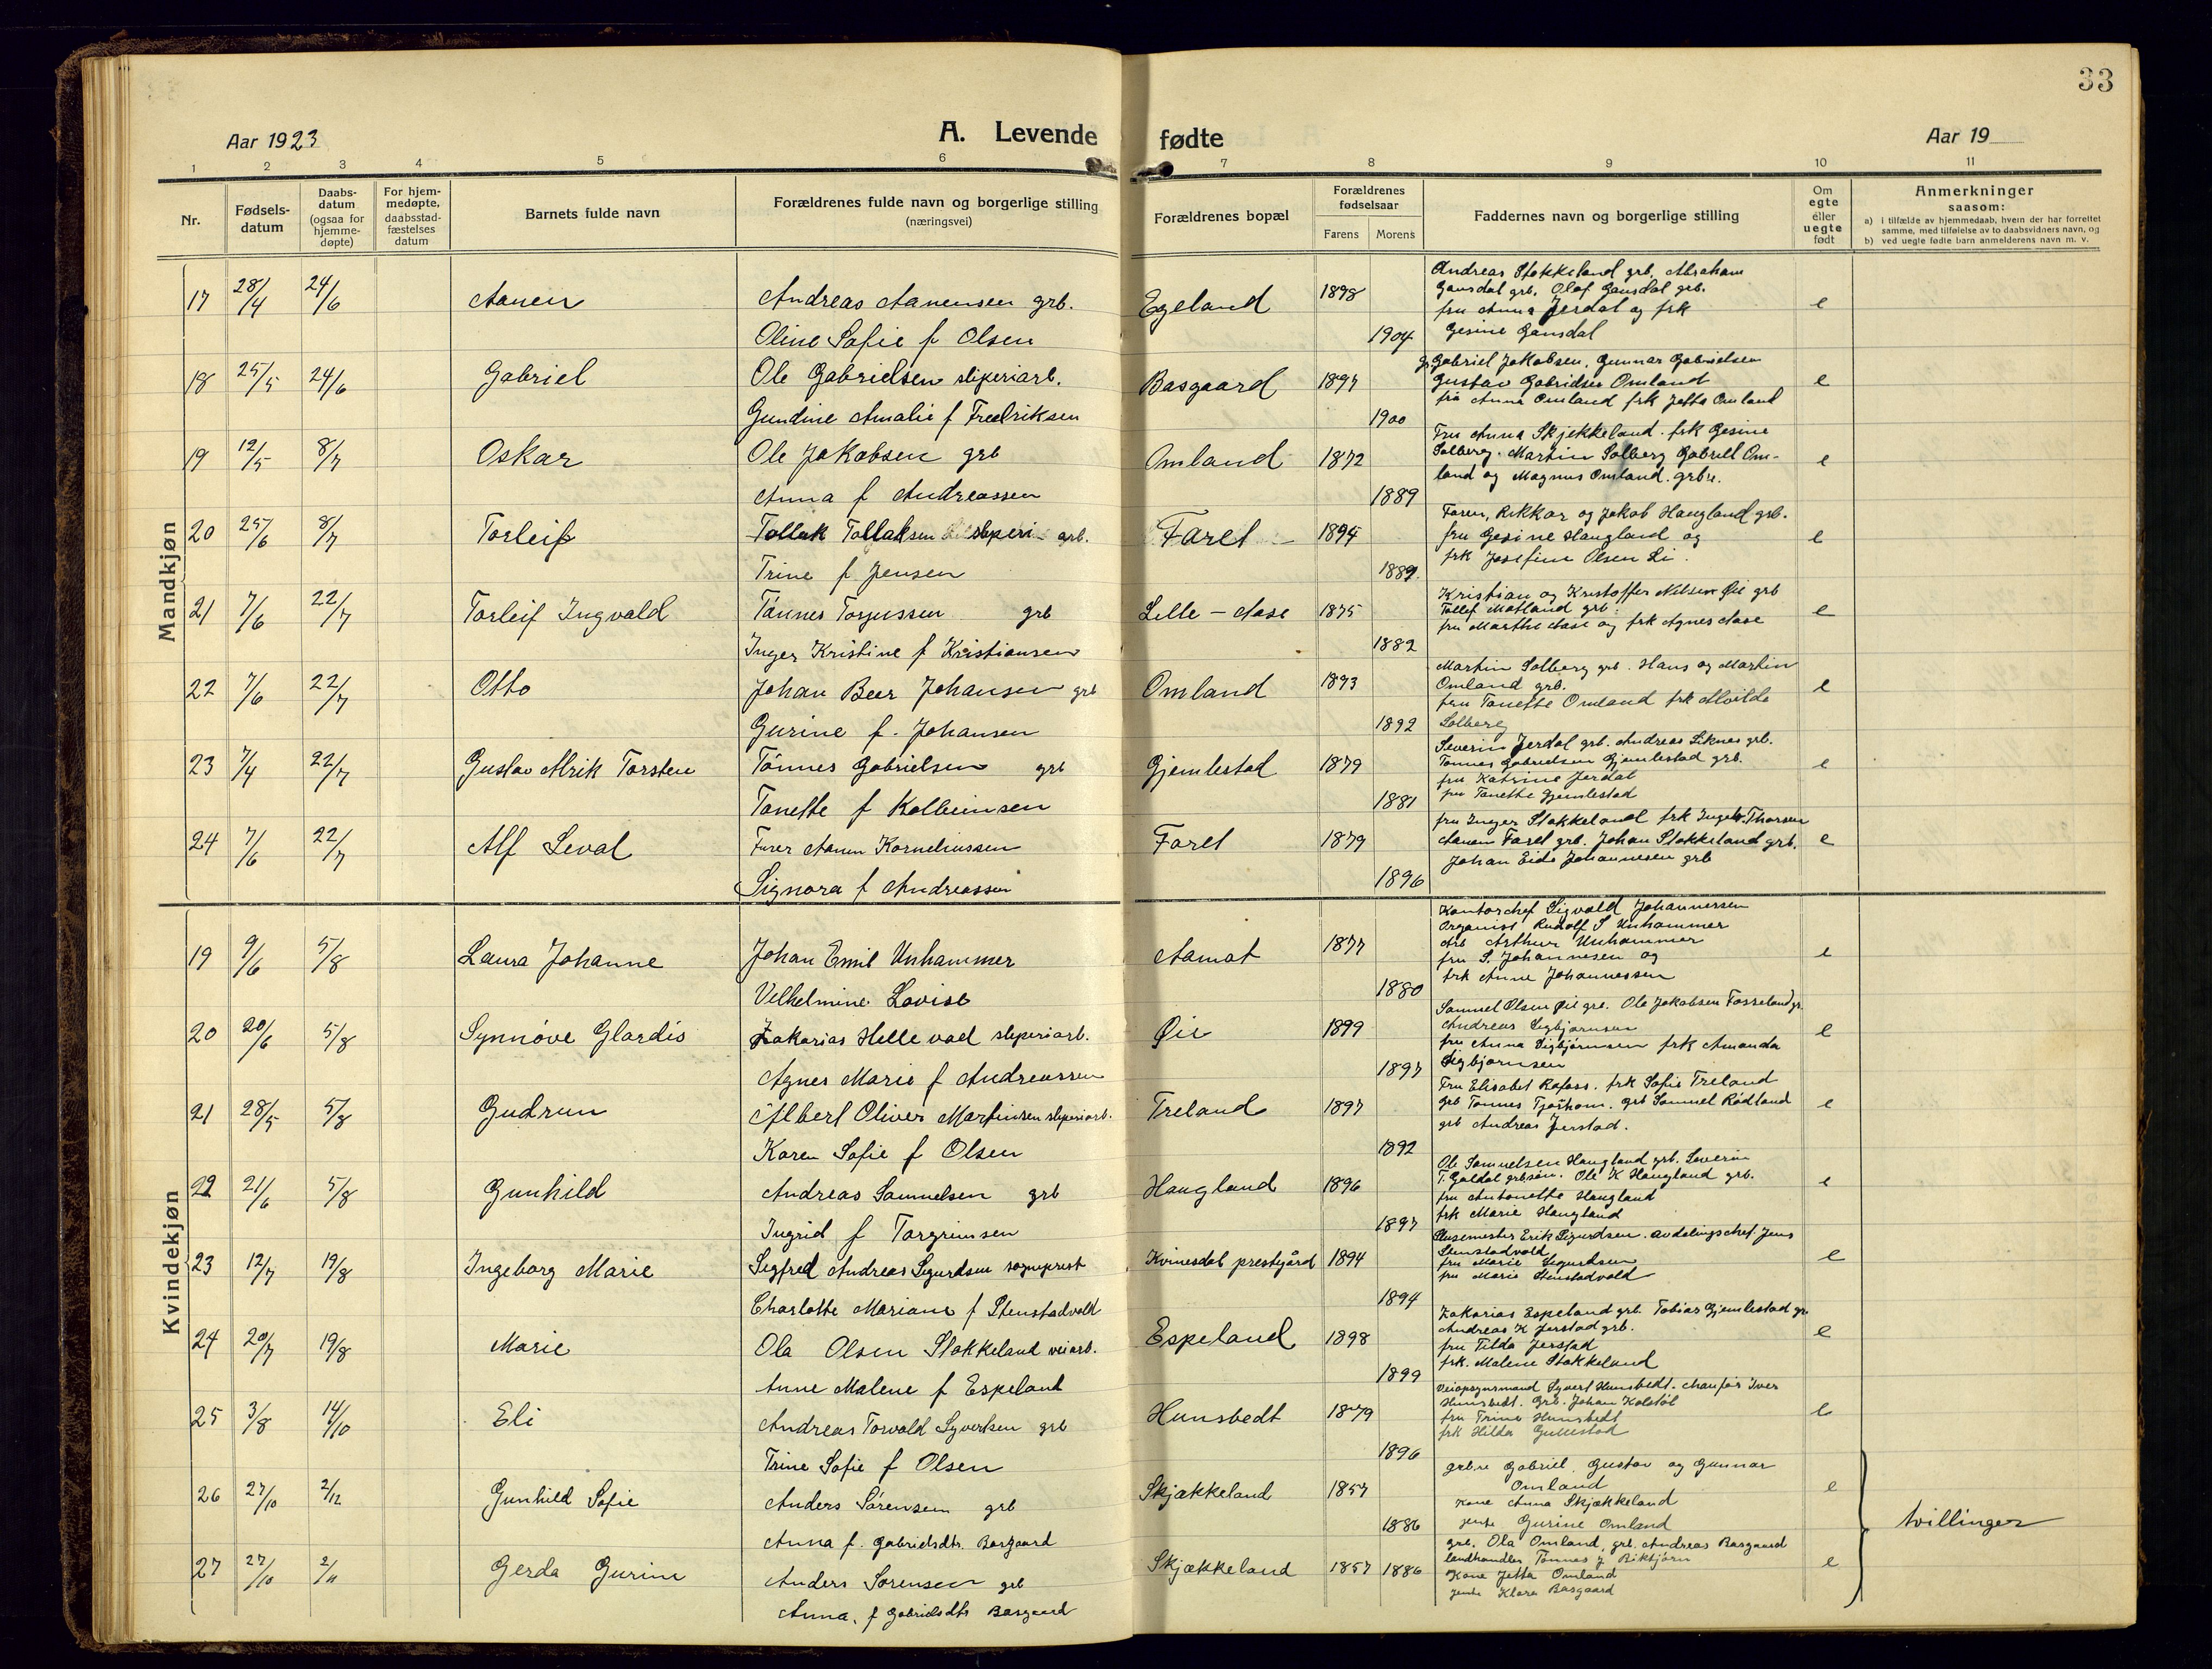 33
Aar 1923
A. Levende fødte
Aar 19
1 2 3 4 5 6 7 8 9 10 11
Nr.
Fødsels-
datum
Daabs-
datum
(ogsaa for
hjemme-
døpte)
For hjem-
medøpte,
daabsstad-
fæstelses
datum
Barnets fulde navn
Forældrenes fulde navn og borgerlige stilling
(næringsvei)
Forældrenes bopæl
Forældrenes
fødselsaar
Farens Morens
Faddernes navn og borgerlige stilling
Om
egte
eller
uegte
født
Anmerkninger
saasom:
a) i tilfælde av hjemmedaab, hvem der har forrettet
samme, med tilføielse av to daabsvidners navn, og
b) ved uegte fødte barn anmelderens navn m. v.
Mandkjøn
17 28/4 24/6 Aanen
Andreas Aanensen grb.
Oline Sofie f Olsen
Egeland 1898 1904
Andreas Stokkeland grb, Abraham
Gausdal grb. Olaf Gausdal grb.
fru Anna Jerdal og frk
Gesine Gausdal
e
18 25/5 24/6 Gabriel
Ole Gabrielsen sliperiarb.
Gundine Amalie f Fredriksen
Basgaard 1897 1900
Gabriel Jakobsen, Gunnar Gabrielsen
Gustav Gabrielsen Omland
fru Anna Omland frk Jetta Omland
e
19 12/5 8/7 Oskar
Ole Jakobsen grb
Anna f Andreassen
Omland 1872 1889
Fru Anna Skjekkeland. frk Gesine
Solberg. Martin Solberg Gabriel Om-
land og Magnus Omland. grbr.
e
20 25/6 8/7 Torleif
Tollak Tollaksen sliperi grb.
Trine f. Jensen
Faret 1894 1889.
Faren, Rikkar og Jakob Haugland grb.
fru Gesine Haugland og
frk Josefine Olsen Li.
e
21 7/6 22/7 Torleif Ingvald
Tønnes Torjussen grb
Inger Kristine f Kristiansen
Lille-Aase 1875 1882
Kristian og Kristoffer Nilsen Øie grb
Tollef Motland grb.
fru Marthe Aase og frk Agnes Aase
e
22 7/6 22/7 Otto
Johan Beer Johansen grb
Gurine f. Johansen
Omland 1893 1892
Martin Solberg grb. Hans og Martin
Omland grb.
fru Tanette Omland frk Alvilde
Solberg
e
23 7/4 22/7 Gustav Alrik Torsten
Tønnes Gabrielsen grb
Tanette f Kolbeinsen
Gjemlestad 1879 1881
Severin Jerdal grb. Andreas Liknes grb.
Tønnes Gabrielsen Gjemlestad grb.
fru Katrine Jerdal
fru Tanette Gjemlestad
e
24 7/6 22/7 Alf Leval
Furer Aanen Korneliussen
Signora f Andreassen
Faret 1879 1896
fru Inger Stokkeland frk Ingebr. Thorsen
Aanen Faret grb. Johan Stokkeland grb.
Johan Eide Johannesen grb
e
Kvindekjøn
19 9/6 5/8 Laura Johanne
Johan Emil Unhammer
Vilhelmine Lovise
Aamot 1877 1880
Kontorchef Sigvald Johannessen
Organist Rudolf S Unhammer
Arb Arthur Unhammer
fru S. Johannesen og
frk Anne Johannessen
e
20 20/6 5/8 Synnøve Glardis
Zakarias Hellevad sliperiarb.
Agnes Marie f Andreassen
Øie 1899 1897
Samuel Olsen Øie grb. Ole Jakobsen Fosseland gr.
Andreas Sigbjørnsen
fru Anna Sigbjørnsen frk Amanda
Sigbjørnsen
e
21 28/5 5/8 Gudrun
Albert Oliver Martinsen sliperiarb.
Karen Sofie f Olsen
Treland 1897 1892
Fru Elisabet Rafoss. frk Sofie Treland
grb Tønnes Tjørhom. grb Samuel Rødland
grb Andreas Jerstad.
e
22 21/6 5/8 Gunhild
Andreas Samuelsen grb
Ingrid f Torgrimsen
Haugland 1896 1897
Ole Samuelsen Haugland grb. Severin
T. Galdal grbsøn. Ole K Haugland grb.
fru Antonette Haugland
frk Marie Haugland
e
23 12/7 19/8 Ingeborg Marie
Sigfred Andreas Sigurdsen sogneprest
Charlotte Mariane f Stenstadvold
Kvinesdal prestegård 1894 1894
Slusemester Erik Sigurdsen. avdelingschef Jens
Stenstadvold
fru Marie Sigurdsen
fru Marie Stenstadvold
e
24 20/7 19/8 Marie
Ola Olsen Stokkeland veiarb.
Anne Malene f Espeland
Espeland 1898 1899
Zakarias Espeland grb. Tobias Gjemlestad gr
Andreas K Jerstad grb.
fru Tilda Jerstad
frk. Malene Stokkeland
e
25 3/8 14/10 Eli
Andreas Torvald Syvertsen grb
Trine Sofie f Olsen
Hunsbedt 1879 1896
Veiopsynsmand Syvert Hunsbedt. chauffør Iver
Hunsbedt. Grb. Johan Kolstøl
fru Trine Hunsbedt
frk Hilda Gullestad
e
26 27/10 2/12 Gunhild Sofie
Anders Sørensen grb
Anna f. Gabrielsdtr. Basgaard
Skjækkeland 1857 1886
grb.e Gabriel, Gustav og Gunnar
Omland
Kone Anna Skjækkeland
jente Gurine Omland
e
tvillinger
27 27/10 2/11 Gerda Gurine
Anders Sørensen grb
Anna, f Gabrielsdtr Basgaard
Skjækkeland 1857 1886
grb. Ola Omland, grb. Andreas Basgaard
Landhandler Tønnes J Birkjørn
Kone Jetta Omland
jente Klara Basgaard
e